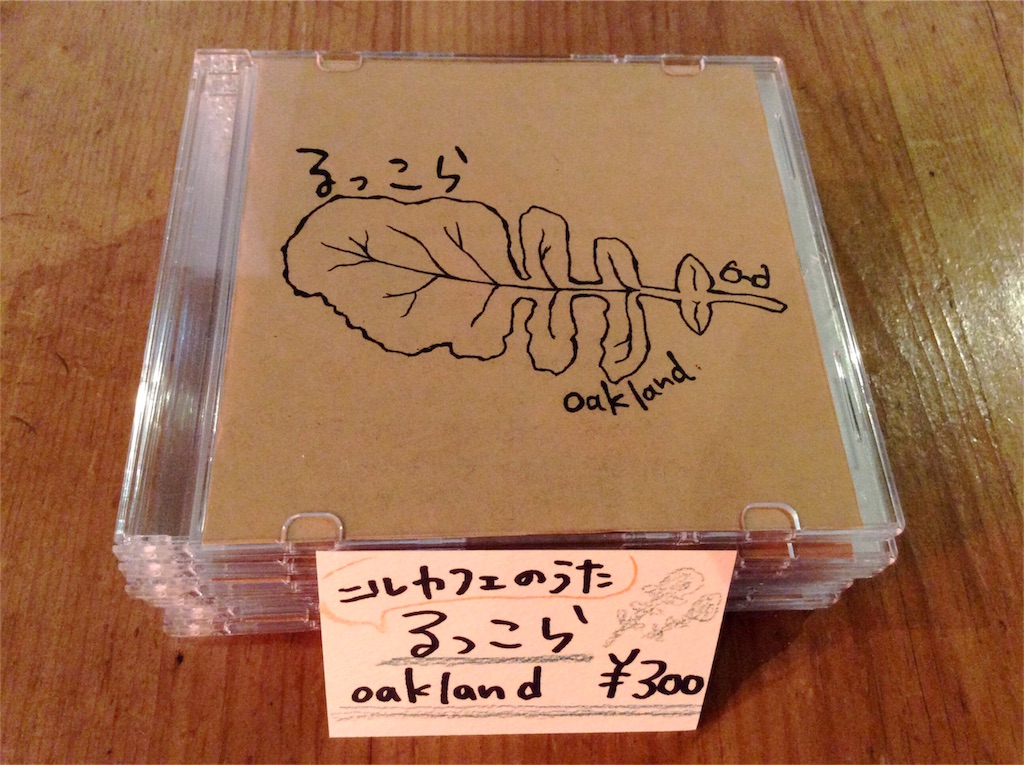 るっこら
oakland
ニルカフェのうた
るっこら
oakland ¥300